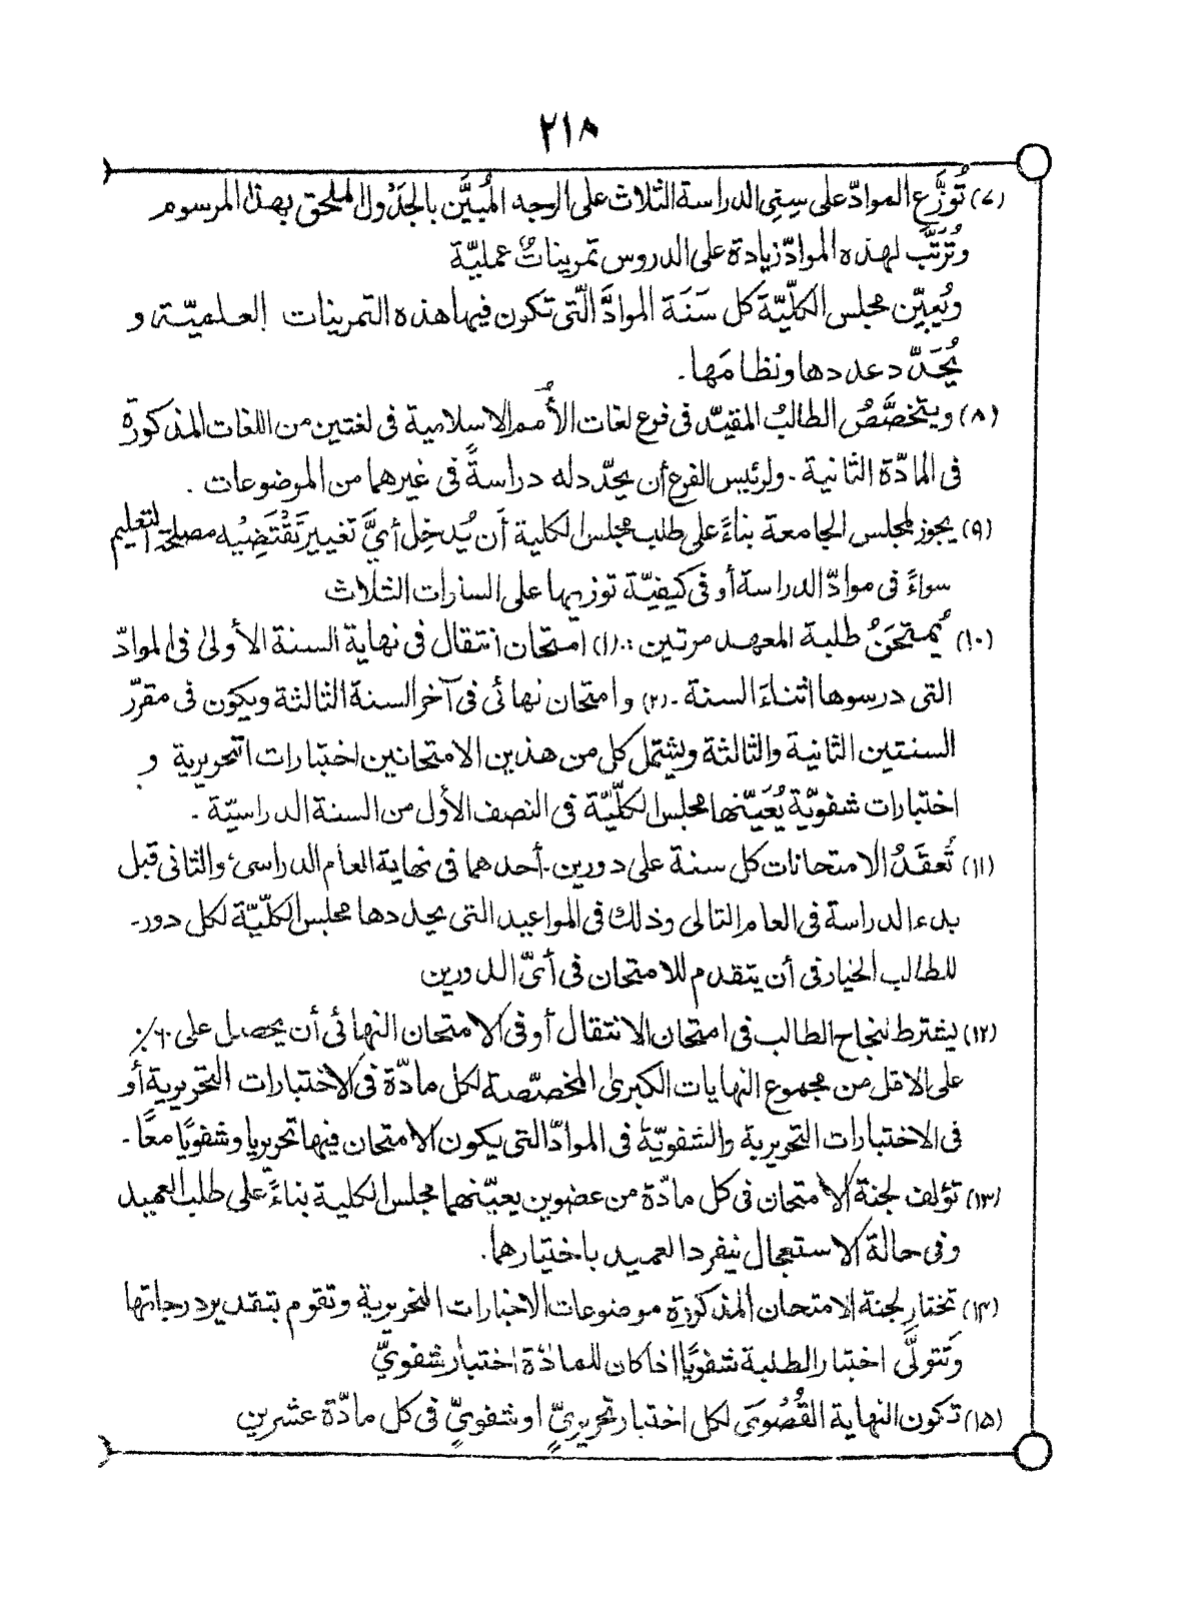 ٢١٨
(٧) تُوزَّع الموادّ على سِنِى الدراسة الثلاث على الوجه المُبيَّن بالجَدْول الملحق بهذا المرسوم
وتُرَتَّب لهذه الموادّ زيادة على الدروس تمريناتٌ عمليّة
ويُعيّن مجلس الكلّيّة كل سَنَة الموادَّ الّتى تكون فيها هذه التمرينات العلميّة و
يُحَدّد عددها ونظامَها.
(٨) ويتخصَّصُ الطالبُ المقيّد فى فرع لغات الأُمم الاسلامية فى لغتين من اللغات المذكورة
فى المادّة الثانية - ولرئيس الفرع أن يحدّد له دراسةً فى غيرهما من الموضوعات .
(٩) يجوز لمجلس الجامعة بناءً على طلب مجلس الكلية أَن يُدخِل أىَّ تغيير تَقْتَضِيْه مصلحة التعليم
سواءً فى موادّ الدراسة أو فى كيفيّة توزيعها على السنوات الثلاث
(١٠) يُمتحَنُ طلبة المعهد مرتين :- (١) امتحان انتقال فى نهاية السنة الأولى فى الموادّ
التى درسوها اثناءَ السنة - (٢) وامتحان نهائى فى آخر السنة الثالثة ويكون فى مقرّر
السنتين الثانية والثالثة ويشتمل كل من هذين الامتحانين اختبارات التحريرية و
اختبارات شفويّة يُعَيّنها مجلس الكلّيّة فى النصف الأول من السنة الدراسيّة -
(١١) تُعقَدُ الامتحانات كل سنة على دورين - أحدهما فى نهاية العام الدراسى والثانى قبل
بدء الدراسة فى العام التالى وذلك فى المواعيد التى يحددها مجلس الكلّيّة لكل دور -
للطالب الخيار فى أن يتقدم للامتحان فى أىّ الدورين
(١٢) يشترط لنجاح الطالب فى امتحان الانتقال أو فى الامتحان النهائى أن يحصل على ٦٠٪
على الاقل من مجموع النهايات الكبرىٰ المخصّصة لكل مادّة فى الاختبارات التحريرية أو
فى الاختبارات التحريرية والشفويّة فى الموادّ التى يكون الامتحان فيها تحريريا وشفويًا معًا -
(١٣) تؤلف لجنة الامتحان فى كل مادّة من عضوين يعيّنهما مجلس الكلية بناءً على طلب العميد
وفى حالة الاستعجال ينفرد العميد باختيارهما.
(١٤) تختار لجنة الامتحان المذكورة موضوعات الاختبارات التحريرية وتقوم بتقدير درجاتها
وتَتولَّى اختبار الطلبة شفويًا اذا كان للمادّة اختبار شفوىٌّ
(١٥) تكون النهاية القُصْوىَ لكل اختبار تحريرىٍّ او شفوىٍّ فى كل مادّة عشرين